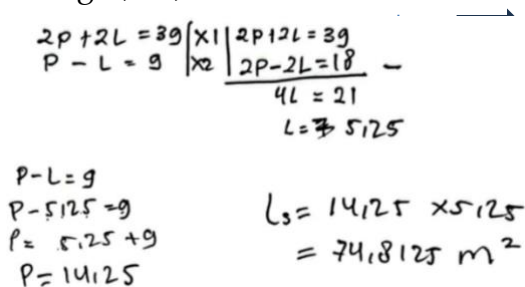 2P + 2L = 39 | x1 | 2P + 2L = 39
P - L = 9 | x2 | 2P - 2L = 18 -
4L = 21
L = 5,25
P - L = 9
P - 5,25 = 9
P = 5,25 + 9
P = 14,25
Ls = 14,25 x 5,25
= 74,8125 m²